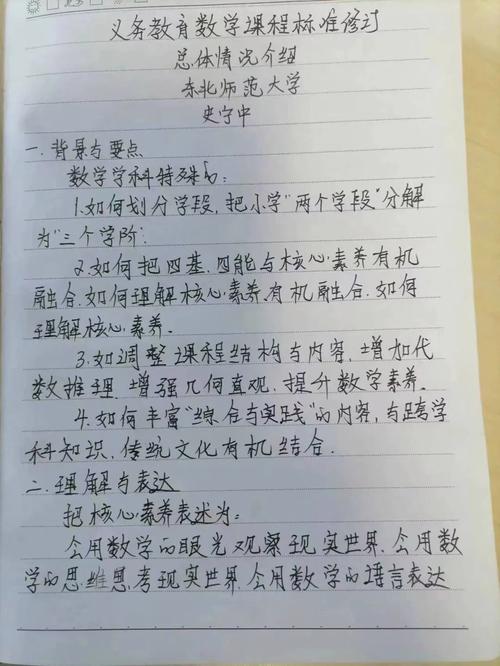 义务教育数学课程标准修订
总体情况介绍
东北师范大学
史宁中
一、背景与要点
数学学科特殊的:
1.如何划分学段,把小学"两个学段"分解
为"三个学阶":
2.如何把四基、四能与核心素养有机
融合.如何理解核心素养.有机融合.如何
理解核心素养。
3.如调整课程结构与内容,增加代
数推理.增强几何直观.提升数学素养。
4.如何丰富"综合与实践"的内容,与跨学
科知识、传统文化有机结合.
二、理解与表达
把核心素养表述为:
会用数学的眼光观察现实世界.会用数
学的思维思考现实世界.会用数学的语言表达